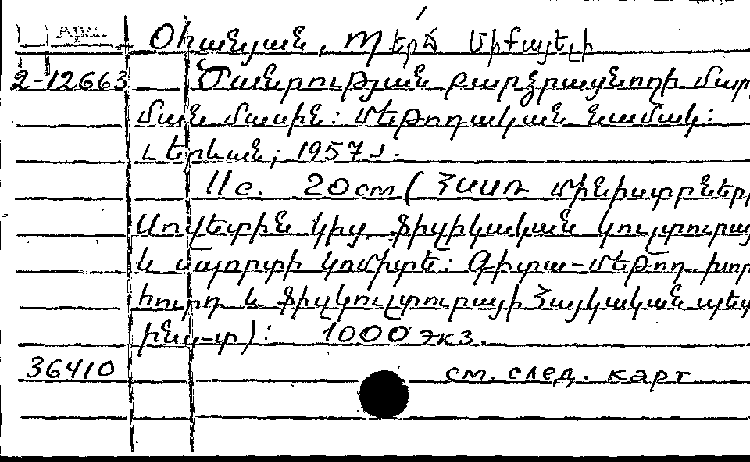 Арм. Օհանյան, Մերճ Միքայելի
2-12663 Ծանրության բարձրացնողի մար
ման մասին: մեթոդական նամակ:
Երևան, 1957թ.
11с. 20cm (ՀՍՍՌ մինիստրների
Սովետին կից ֆիզիկական կուլտուրայ
և սպորտի կոմիտե: Գիտա-մեթոդ խոր
հուրդ և ֆիզկուլտուրայի Հայկական պետ
ինս-տ): 1000 экз.
36410 см. след. карт